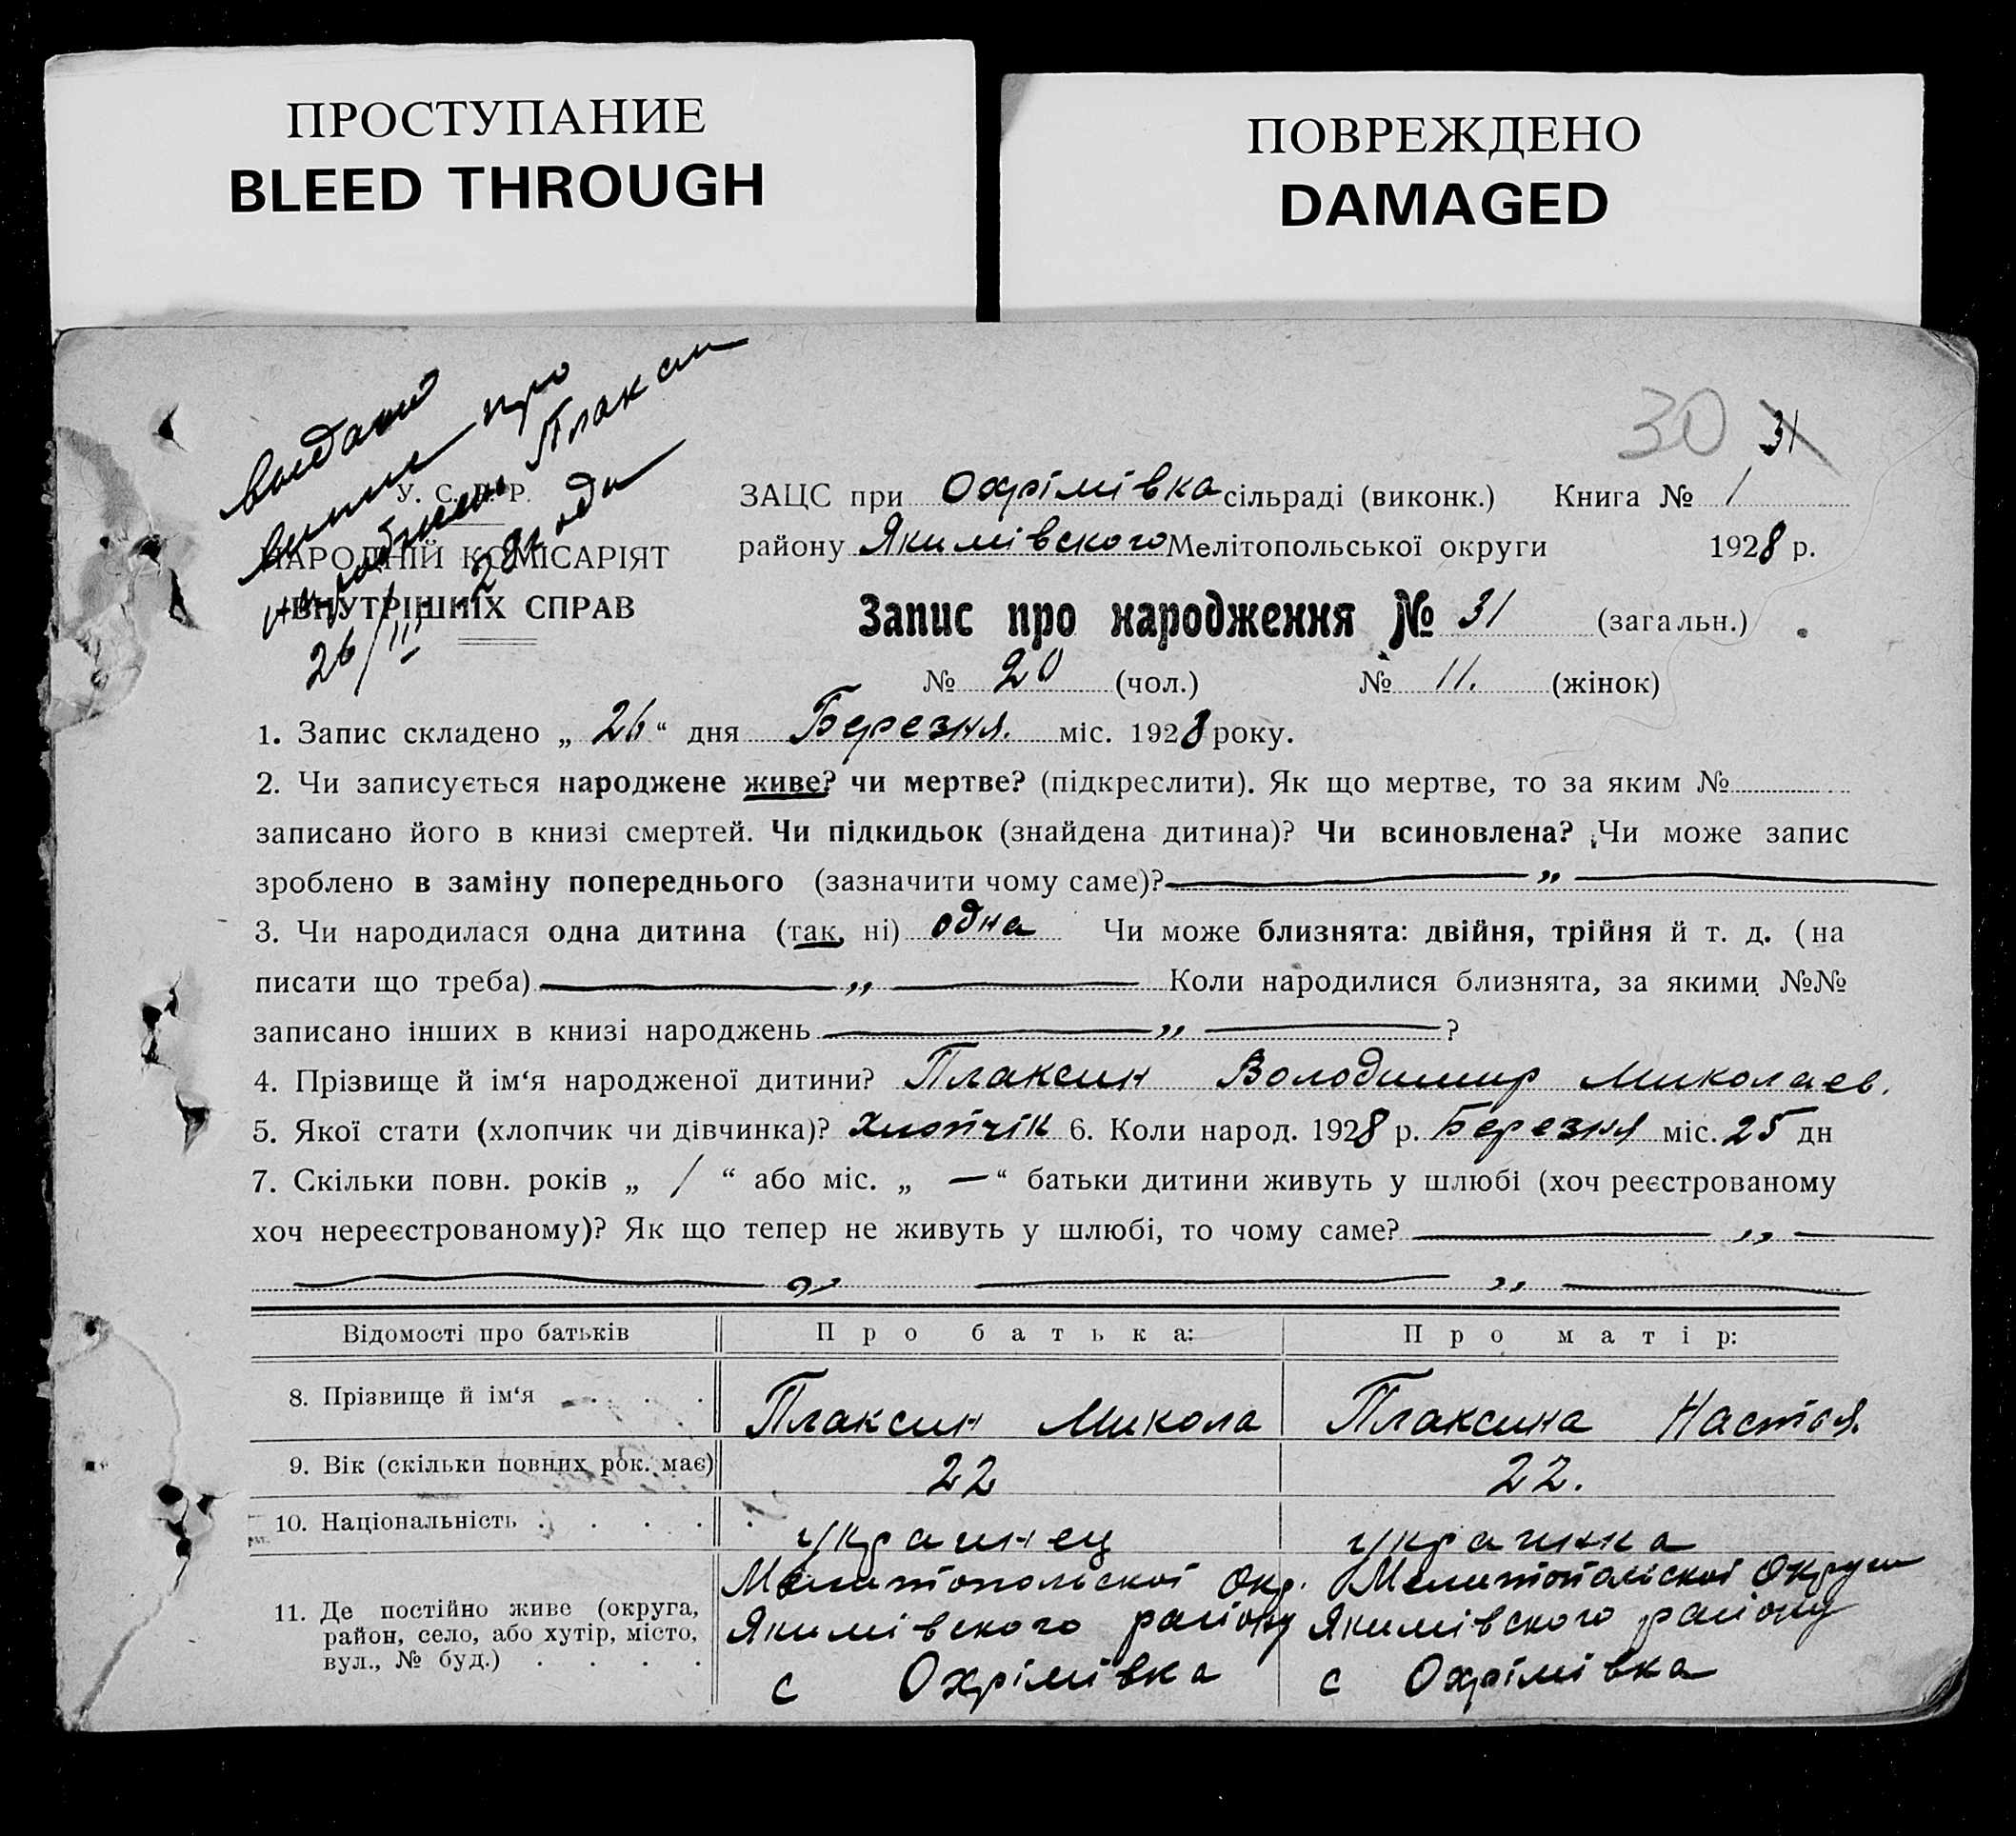 ПРОСТУПАНИЕ
BLEED THROUGH
ПОВРЕЖДЕНО
DAMAGED
про
Плаксин
28 года
26/III
30 31
У. С. Р. Р.
НАРОДНІЙ КОМІСАРІЯТ
ВНУТРІШНІХ СПРАВ
ЗАЦС при Охрімівка сільраді (виконк.) Книга № 1
району Якимівского Мелітопольської округи 1928 р.
Запис про народження № 31 (загальн.)
№ 20 (чол.) № 11. (жінок)
1. Запис складено „ 26 “ дня Березня. міс. 1928 року.
2. Чи записується народжене живе? чи мертве? (підкреслити). Як що мертве, то за яким №
записано його в книзі смертей. Чи підкидьок (знайдена дитина)? Чи всиновлена? Чи може запис
зроблено в заміну попереднього (зазначити чому саме)? — „ —
3. Чи народилася одна дитина (так, ні) одна Чи може близнята: двійня, трійня й т. д. (на
писати що треба) — „ — Коли народилися близнята, за якими №№
записано інших в книзі народжень — „ — ?
4. Прізвище й ім‘я народженої дитини? Плаксин Володимир Миколаев.
5. Якої стати (хлопчик чи дівчинка)? хлопчік 6. Коли народ. 1928 р. Березня міс. 25 дн
7. Скільки повн. років „ / “ або міс. „ — “ батьки дитини живуть у шлюбі (хоч реєстрованому
хоч нереєстрованому)? Як що тепер не живуть у шлюбі, то чому саме? — „ —
— „ — „ —
Відомості про батьків Про батька: Про матір:
8. Прізвище й ім‘я Плаксин Микола Плаксина Настя.
9. Вік (скільки повних рок. має) 22 22.
10. Національність украинец украинка
11. Де постійно живе (округа, район, село, або хутір, місто, вул., № буд.)
Мелитопольскої Окр.
Якимівского району
с Охрімівка
Мелитопольскої Округи
Якимівского району
с Охрімівка